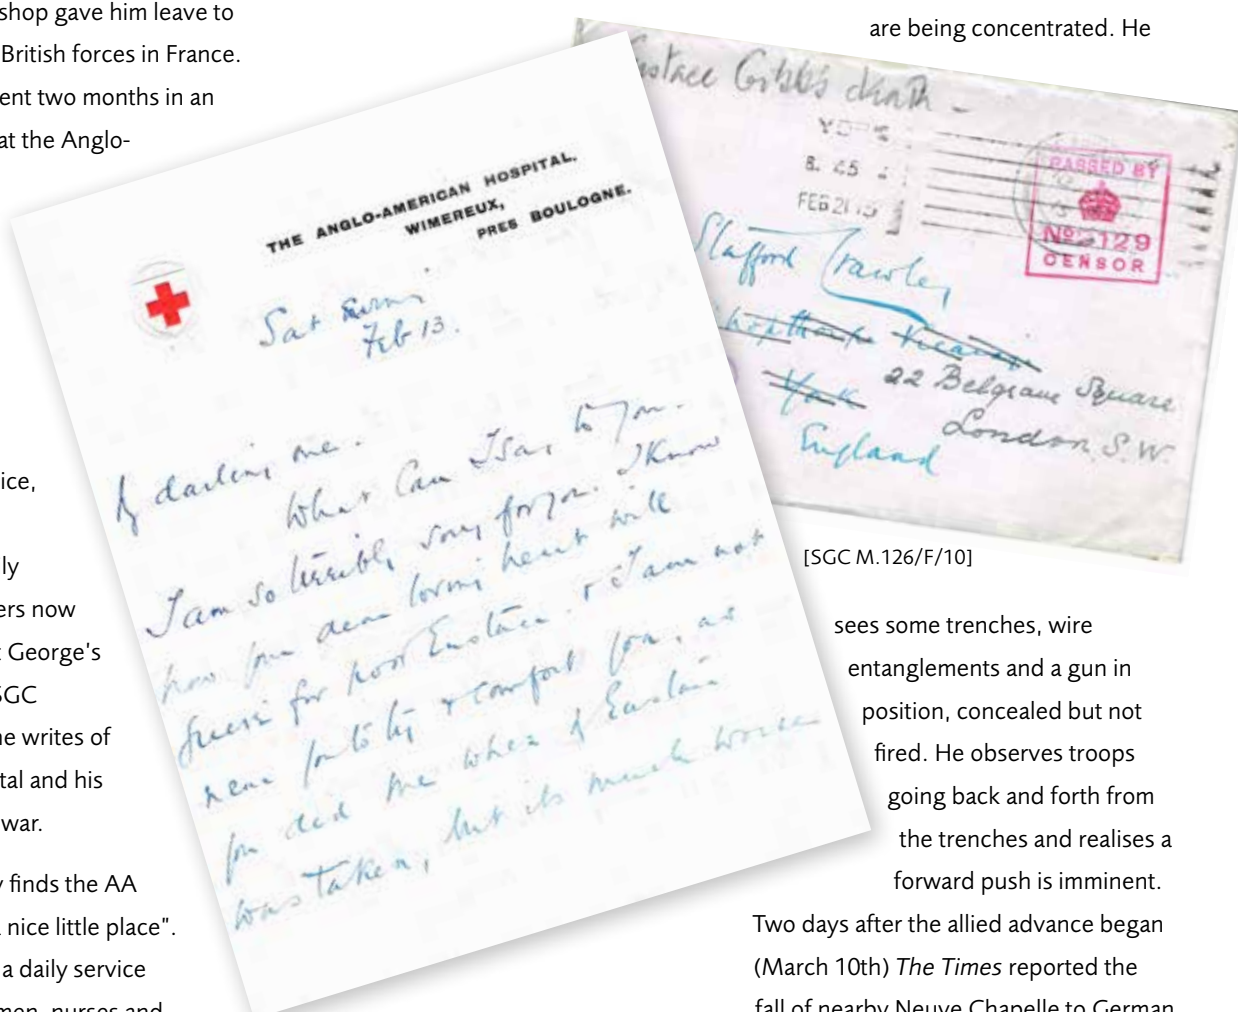 shop gave him leave to
British forces in France.
ent two months in an
at the Anglo-
ice,
ly
ers now
t George's
SGC
he writes of
tal and his
war.
y finds the AA
nice little place".
a daily service
men, nurses and
THE ANGLO-AMERICAN HOSPITAL,
WIMEREUX,
PRES BOULOGNE.
Sat
Feb 13.
My darling me.
What Can I say to you.
I am so terribly sorry for you. I know
how your dear loving heart will
grieve for poor Eustace. & I am not
near you to try & comfort you, as
you did me when
was taken, but its much worse
are being concentrated. He
Eustace Gibbs death -
YORK
8. 45
FEB 21 15
PASSED BY
No 129
CENSOR
Stafford Crawley
Bishopthorpe Vicarage
York
22 Belgrave Square
London. S.W.
England
[SGC M.126/F/10]
sees some trenches, wire
entanglements and a gun in
position, concealed but not
fired. He observes troops
going back and forth from
the trenches and realises a
forward push is imminent.
Two days after the allied advance began
(March 10th) The Times reported the
fall of nearby Neuve Chapelle to German